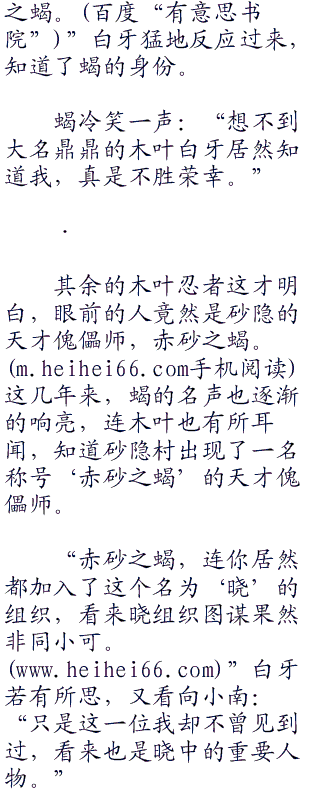 之蝎。(百度“有意思书
院”)”白牙猛地反应过来，
知道了蝎的身份。
蝎冷笑一声：“想不到
大名鼎鼎的木叶白牙居然知
道我，真是不胜荣幸。”
.
其余的木叶忍者这才明
白，眼前的人竟然是砂隐的
天才傀儡师，赤砂之蝎。
(m.heihei66.com手机阅读)
这几年来，蝎的名声也逐渐
的响亮，连木叶也有所耳
闻，知道砂隐村出现了一名
称号‘赤砂之蝎’的天才傀
儡师。
“赤砂之蝎，连你居然
都加入了这个名为‘晓’的
组织，看来晓组织图谋果然
非同小可。
(www.heihei66.com)”白牙
若有所思，又看向小南：
“只是这一位我却不曾见到
过，看来也是晓中的重要人
物。”